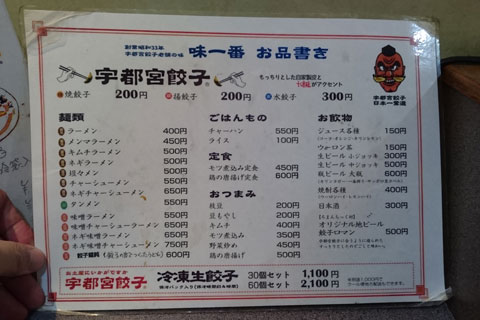 創業昭和33年
宇都宮餃子老舗の味
味一番 お品書き
宇都宮餃子
もっちりとした自家製皮と
がアクセント
焼餃子 200円
揚餃子 200円
水餃子 300円
宇都宮餃子
日本一宣言
麺類
ラーメン 400円
メンマラーメン 450円
キムチラーメン 500円
ネギラーメン 500円
坦々メン 550円
チャーシューメン 550円
ネギチャーシューメン 650円
タンメン 550円
味噌ラーメン 550円
味噌チャーシューラーメン 650円
ネギ味噌ラーメン 650円
ネギ味噌チャーシューラーメン 750円
600円
ごはんもの
チャーハン 550円
ライス 100円
定食
モツ煮込み定食 450円
鶏の唐揚げ定食 550円
おつまみ
枝豆 200円
豆もやし 200円
キムチ 400円
モツ煮込み 400円
野菜炒め 450円
鶏の唐揚げ 500円
お飲物
ジュース各種 150円
ウーロン茶 150円
生ビール 小ジョッキ 300円
生ビール 中ジョッキ 500円
瓶ビール 大瓶 600円
焼酎各種 400円
日本酒 300円
オリジナル地ビール
餃子ロマン 500円
お土産にいかがですか
宇都宮餃子
冷凍生餃子
30個セット 1,100円
60個セット 2,100円